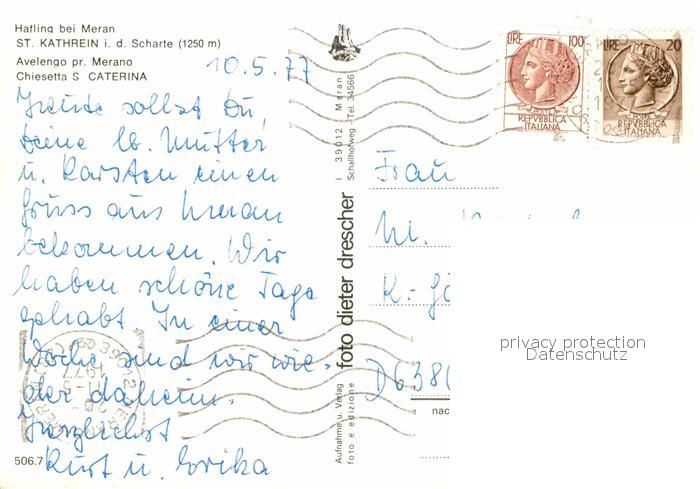 Hafling bei Meran
ST. KATHREIN i. d. Scharte (1250 m)
Avelengo pr. Merano
Chiesetta S CATERINA
10.5.77
Heute sollst Du,
Deine lb. Mutter
u. Karsten einen
Gruss aus Meran
bekommen. Wir
haben schöne Tage
gehabt. In einer
Woche sind wir wie-
der daheim.
Herzlichst
Kurt u. Erika
506.7
I 39012 Meran
Schallhofweg - Tel. 34566
foto dieter drescher
Aufnahme u. Verlag
foto e edizione
LIRE 100
REPVBBLICA
ITALIANA
LIRE 20
REPVBBLICA
ITALIANA
Frau
M.
K.-
D638
nac
privacy protection
Datenschutz